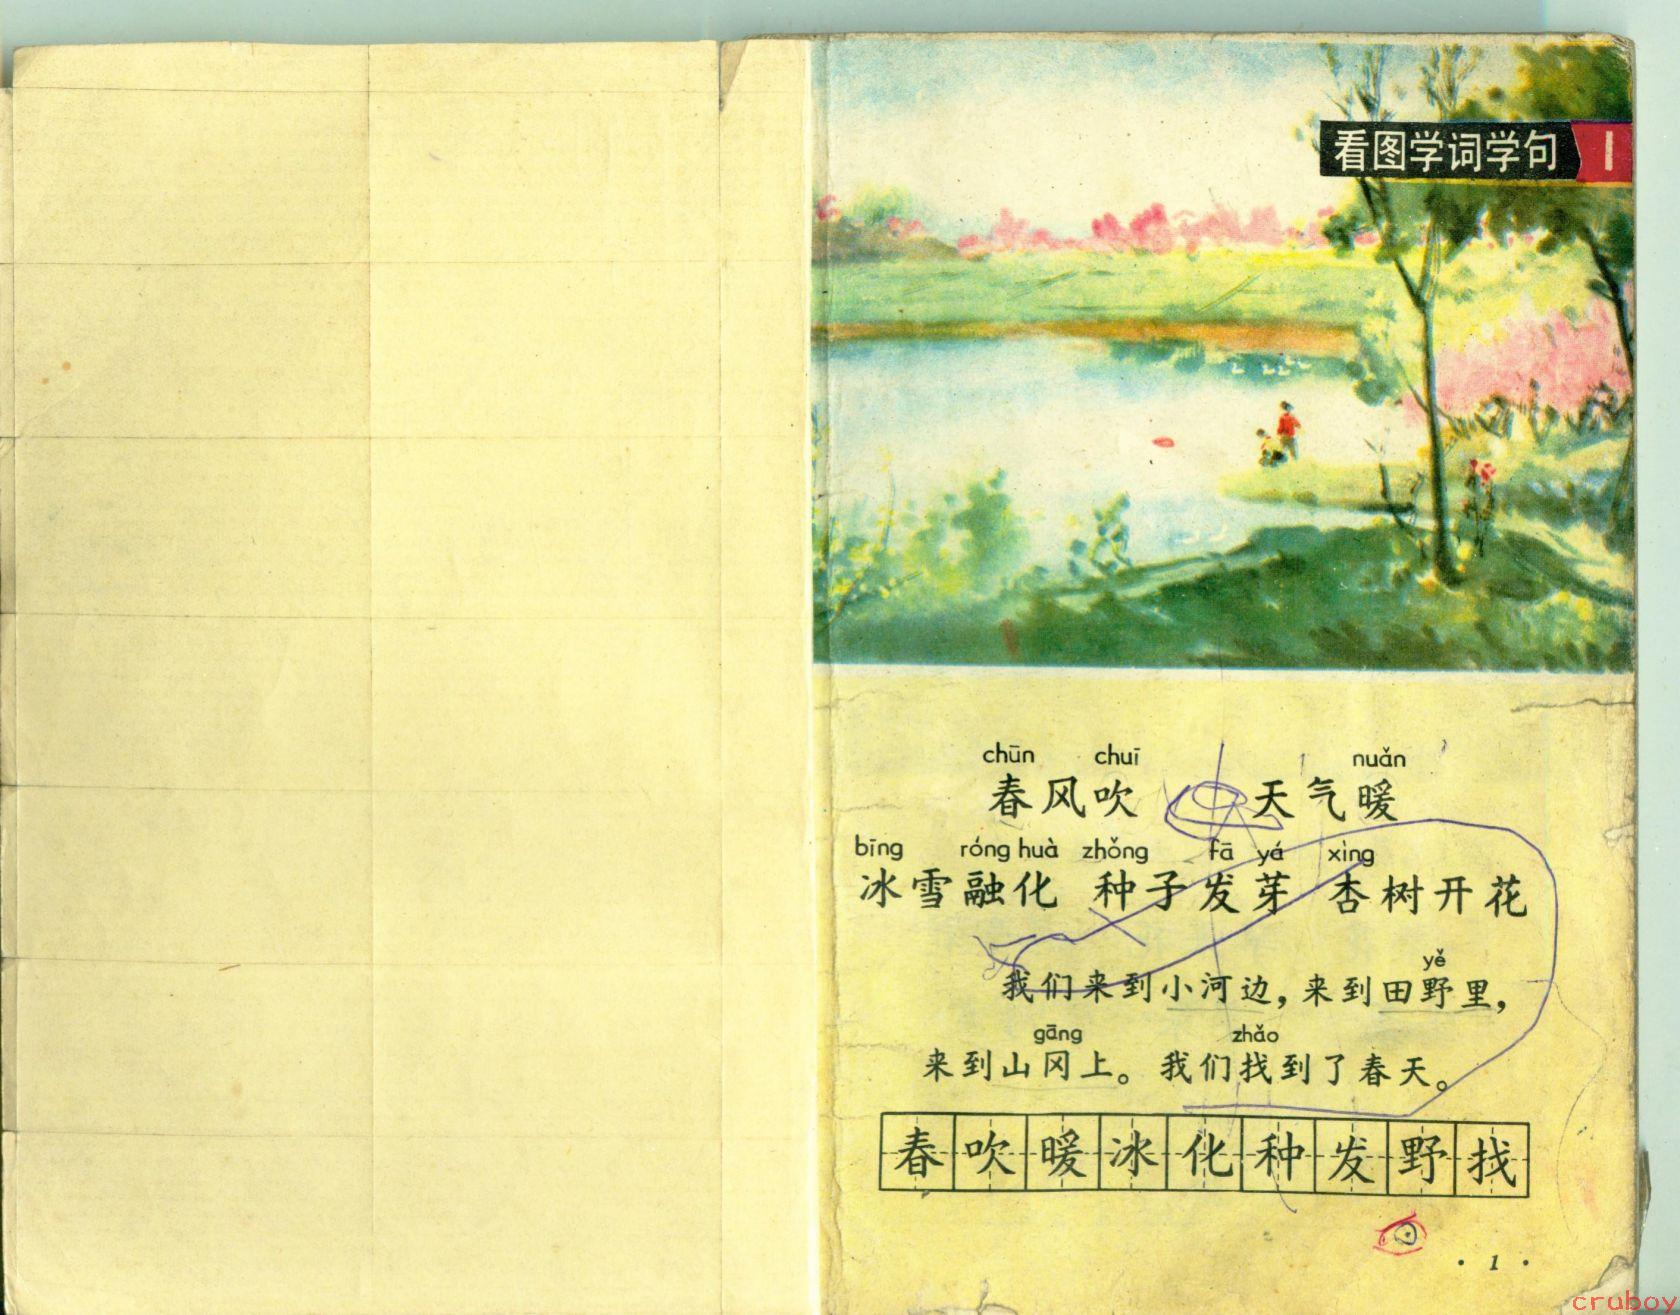 看图学词学句 1
chūn chuī nuǎn
春风吹 天气暖
bīng róng huà zhǒng fā yá xìng
冰雪融化 种子发芽 杏树开花
yě
我们来到小河边，来到田野里，
gāng zhǎo
来到山冈上。我们找到了春天。
春吹暖冰化种发野找
·1·
cruboy